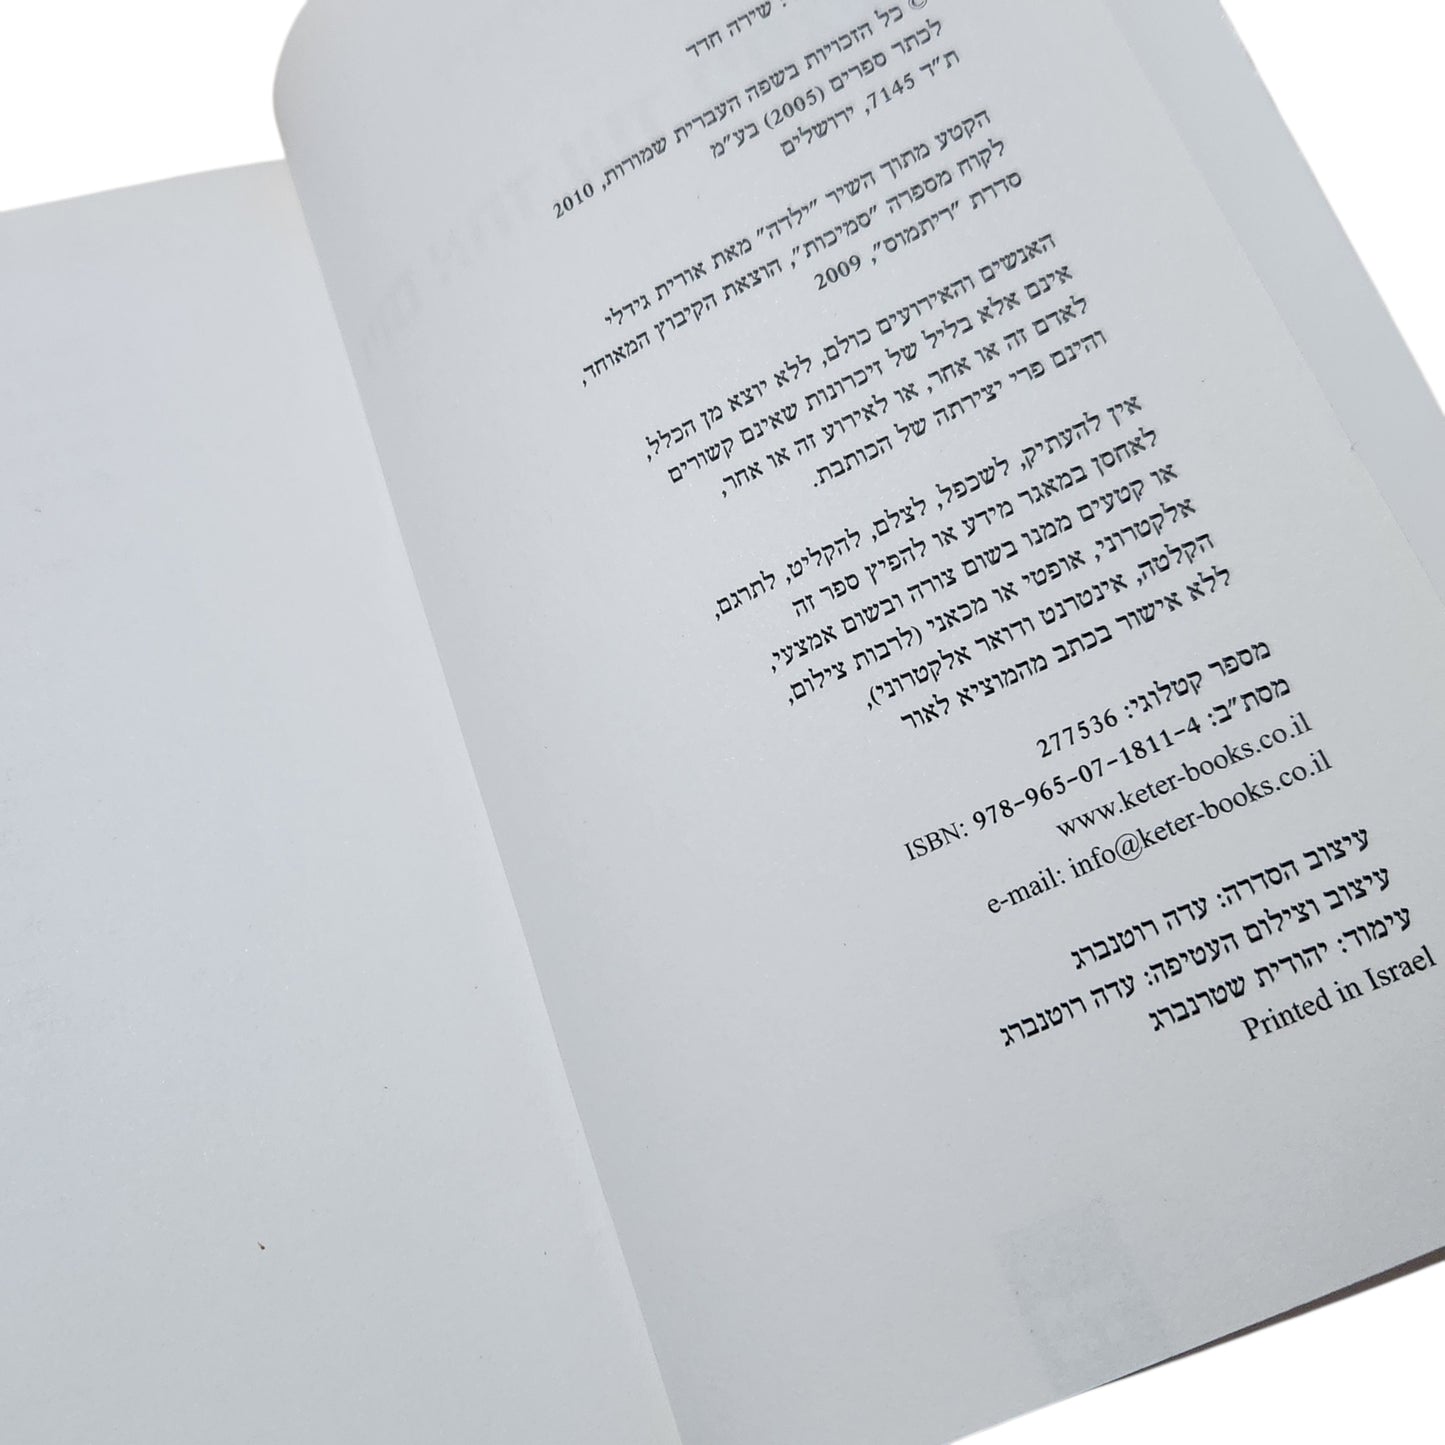 שירה חדד
© כל הזכויות בשפה העברית שמורות, 2010
לכתר ספרים (2005) בע"מ
ת"ד 7145, ירושלים
הקטע מתוך השיר "ילדה" מאת אורית גידלי
לקוח מספרה "סמיכות", הוצאת הקיבוץ המאוחד,
סדרת "ריתמוס", 2009
האנשים והאירועים כולם, ללא יוצא מן הכלל,
אינם אלא בליל של זיכרונות שאינם קשורים
לאדם זה או אחר, או לאירוע זה או אחר,
והינם פרי יצירתה של הכותבת.
אין להעתיק, לשכפל, לצלם, להקליט, לתרגם,
לאחסן במאגר מידע או להפיץ ספר זה
או קטעים ממנו בשום צורה ובשום אמצעי,
אלקטרוני, אופטי או מכאני (לרבות צילום,
הקלטה, אינטרנט ודואר אלקטרוני),
ללא אישור בכתב מהמוציא לאור
מספר קטלוגי: 277536
מסת"ב: ISBN: 978-965-07-1811-4
www.keter-books.co.il
e-mail: info@keter-books.co.il
עיצוב הסדרה: עדה רוטנברג
עיצוב וצילום העטיפה: עדה רוטנברג
עימוד: יהודית שטרנברג
Printed in Israel